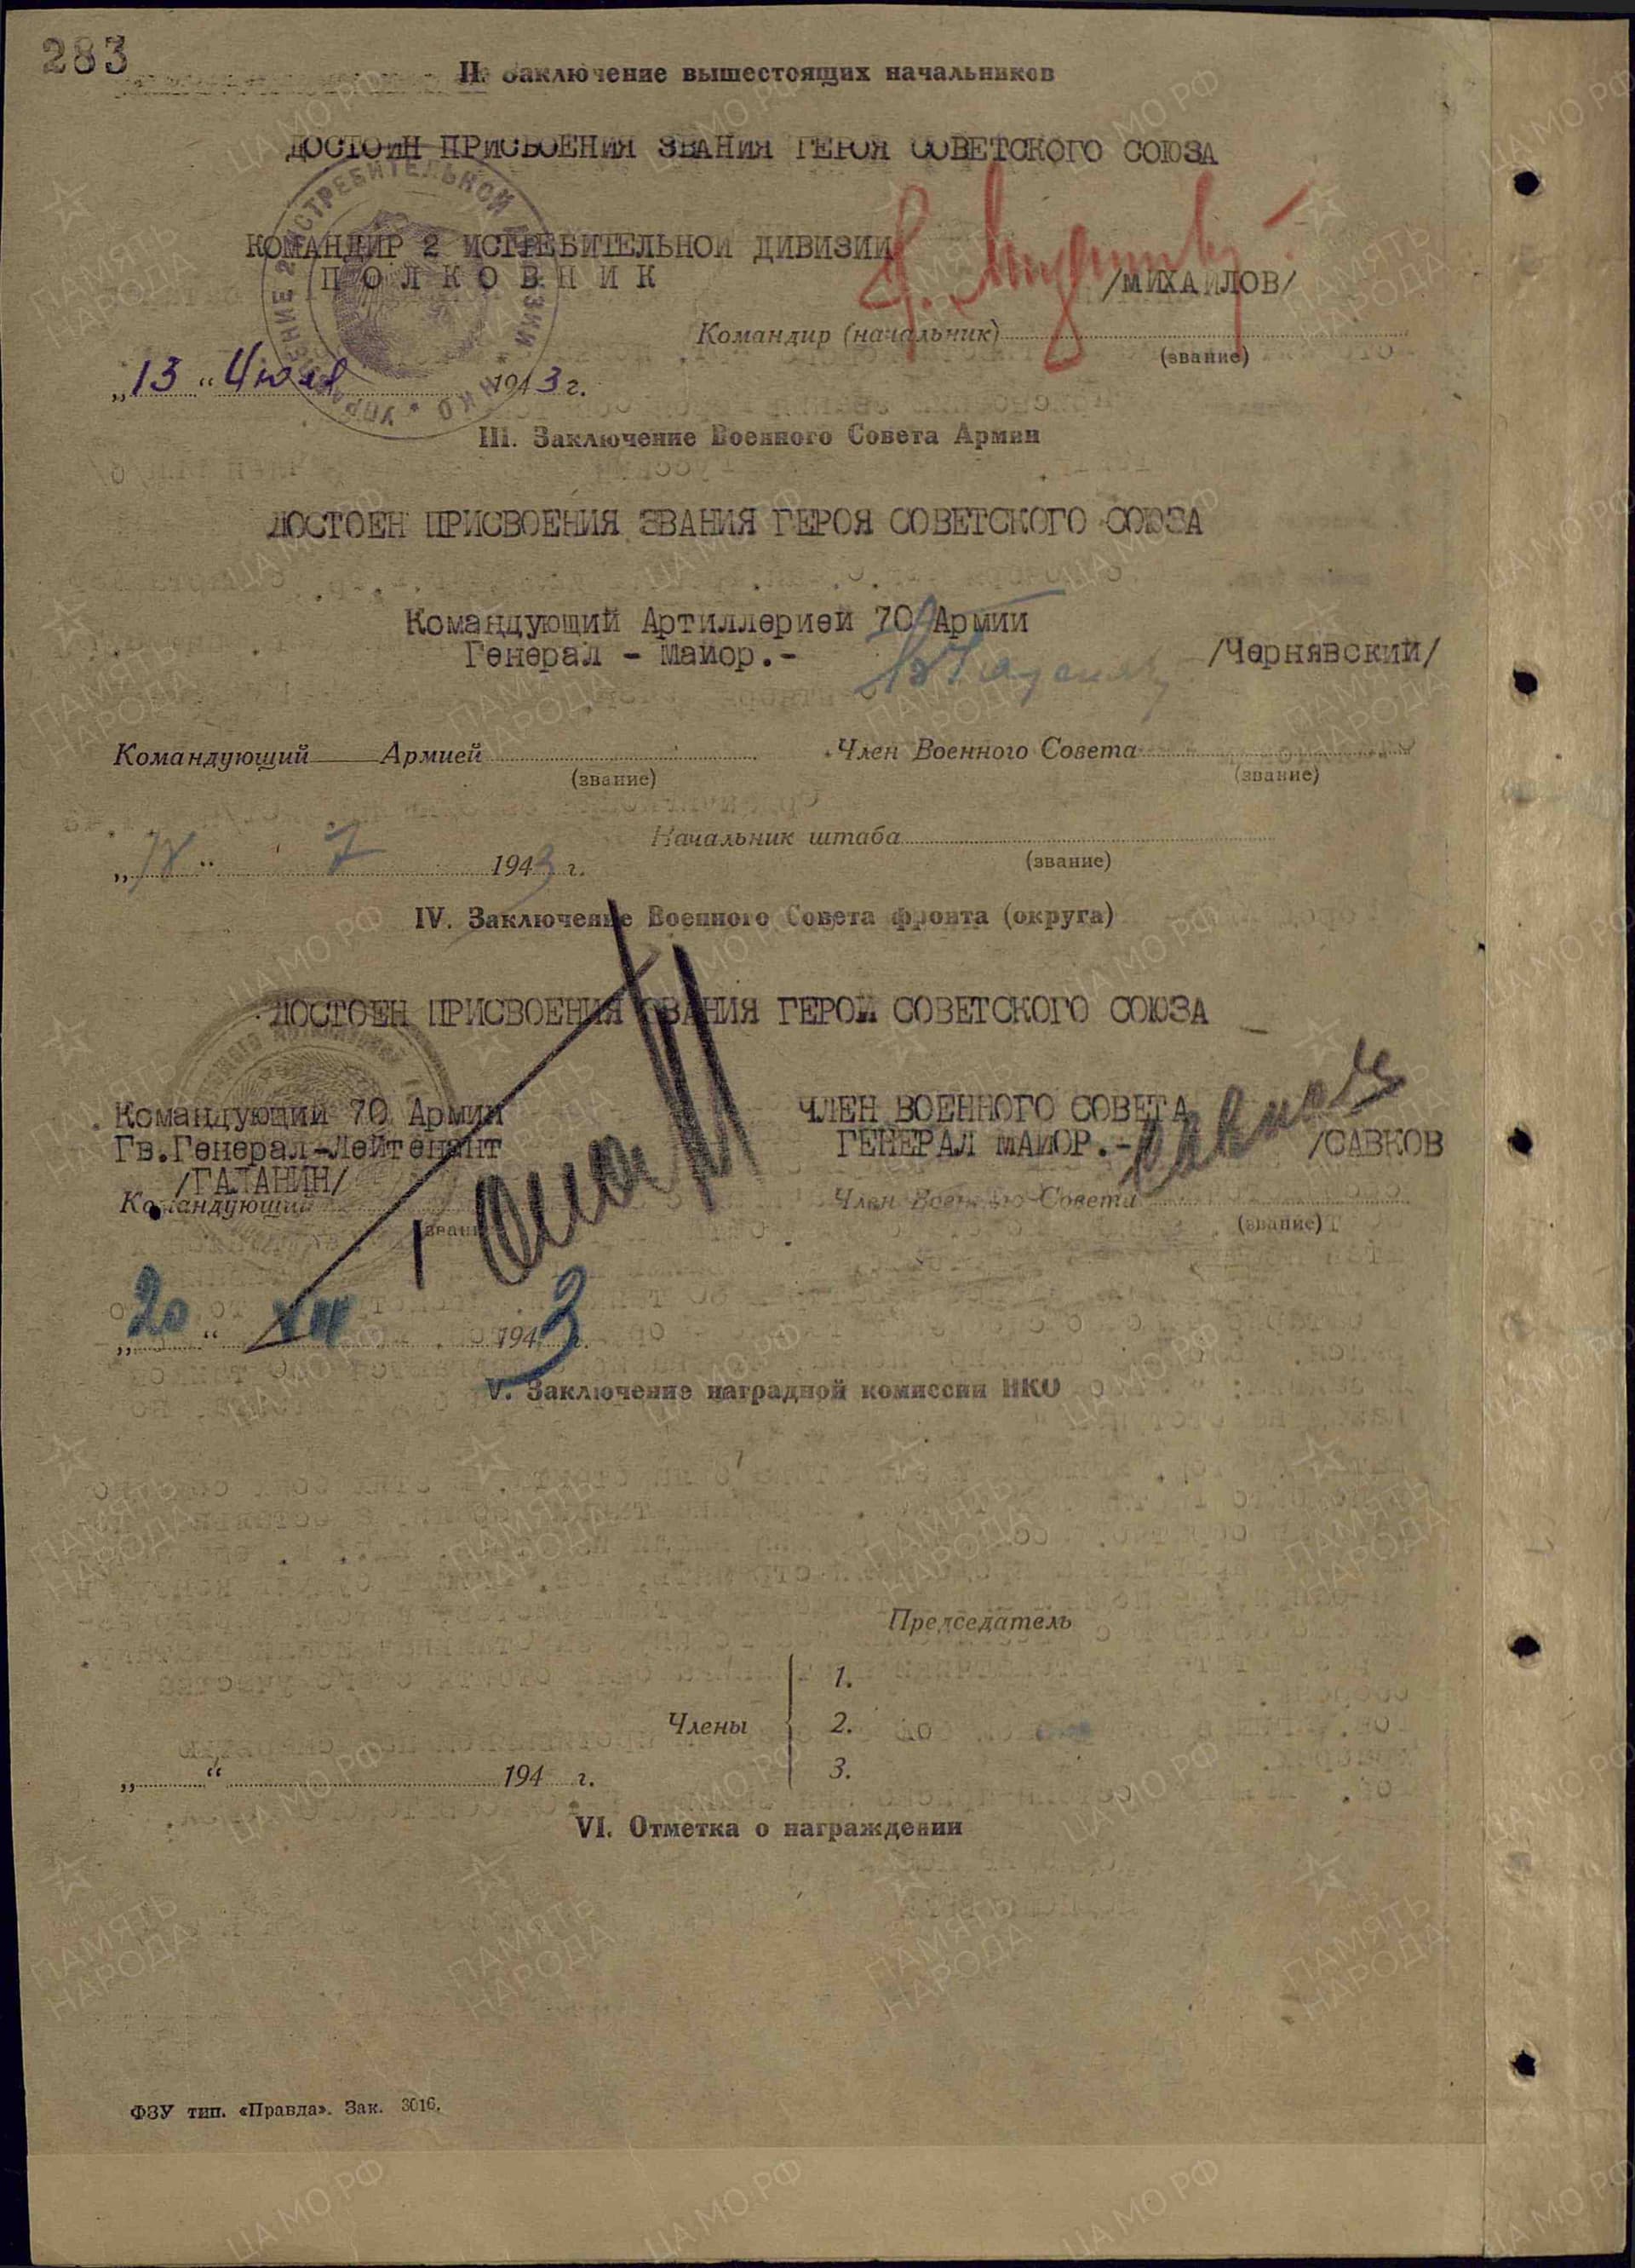 283
II. Заключение вышестоящих начальников
ДОСТОИН ПРИСВОЕНИЯ ЗВАНИЯ ГЕРОЯ СОВЕТСКОГО СОЮЗА
КОМАНДИР 2 ИСТРЕБИТЕЛЬНОЙ ДИВИЗИИ
ПОЛКОВНИК
/МИХАЙЛОВ/
Командир (начальник)
(звание)
„13“ Июля 1943 г.
III. Заключение Военного Совета Армии
ДОСТОЕН ПРИСВОЕНИЯ ЗВАНИЯ ГЕРОЯ СОВЕТСКОГО СОЮЗА
Командующий Артиллерией 70 Армии
Генерал - Майор.- /Чернявский/
Командующий Армией Член Военного Совета
(звание) (звание)
Начальник штаба
(звание)
„ “ 7 1943 г.
IV. Заключение Военного Совета фронта (округа)
ДОСТОЕН ПРИСВОЕНИЯ ЗВАНИЯ ГЕРОЯ СОВЕТСКОГО СОЮЗА
Командующий 70 Армии ЧЛЕН ВОЕННОГО СОВЕТА
Гв.Генерал-Лейтенант ГЕНЕРАЛ МАЙОР.- /САВКОВ
/ГАЛАНИН/
Командующий Член Военного Совета
(звание) (звание)
„20“ 1943 г.
V. Заключение наградной комиссии НКО
Председатель
1.
Члены 2.
3.
„ “ 194 г.
VI. Отметка о награждении
ФЗУ тип. «Правда». Зак. 3016.
ПАМЯТЬ НАРОДА
ЦА МО РФ